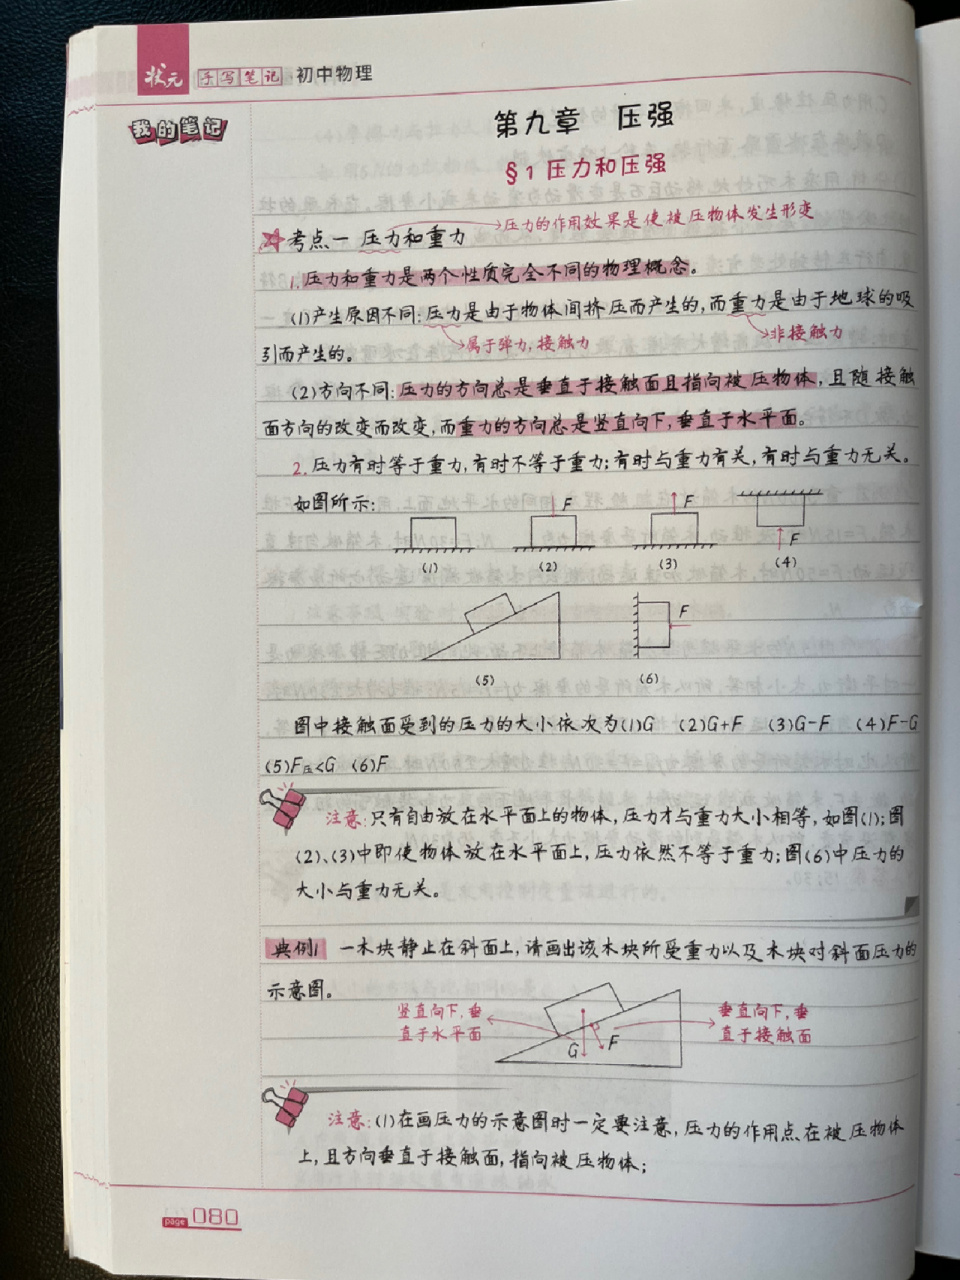 状元 手写笔记 初中物理
我的笔记
第九章 压强
§1 压力和压强
压力的作用效果是使被压物体发生形变
考点一 压力和重力
1.压力和重力是两个性质完全不同的物理概念。
(1)产生原因不同:压力是由于物体间挤压而产生的,而重力是由于地球的吸
属于弹力,接触力
非接触力
引而产生的。
(2)方向不同:压力的方向总是垂直于接触面且指向被压物体,且随接触
面方向的改变而改变,而重力的方向总是竖直向下,垂直于水平面。
2.压力有时等于重力,有时不等于重力;有时与重力有关,有时与重力无关。
如图所示:
F
F
F
(1) (2) (3) (4)
F
(5) (6)
图中接触面受到的压力的大小依次为(1)G (2)G+F (3)G-F (4)F-G
(5)F压<G (6)F
注意:只有自由放在水平面上的物体,压力才与重力大小相等,如图(1);图
(2)、(3)中即使物体放在水平面上,压力依然不等于重力;图(6)中压力的
大小与重力无关。
典例1 一木块静止在斜面上,请画出该木块所受重力以及木块对斜面压力的
示意图。
竖直向下,垂
直于水平面
G F
垂直向下,垂
直于接触面
注意:(1)在画压力的示意图时一定要注意,压力的作用点在被压物体
上,且方向垂直于接触面,指向被压物体;
page 080